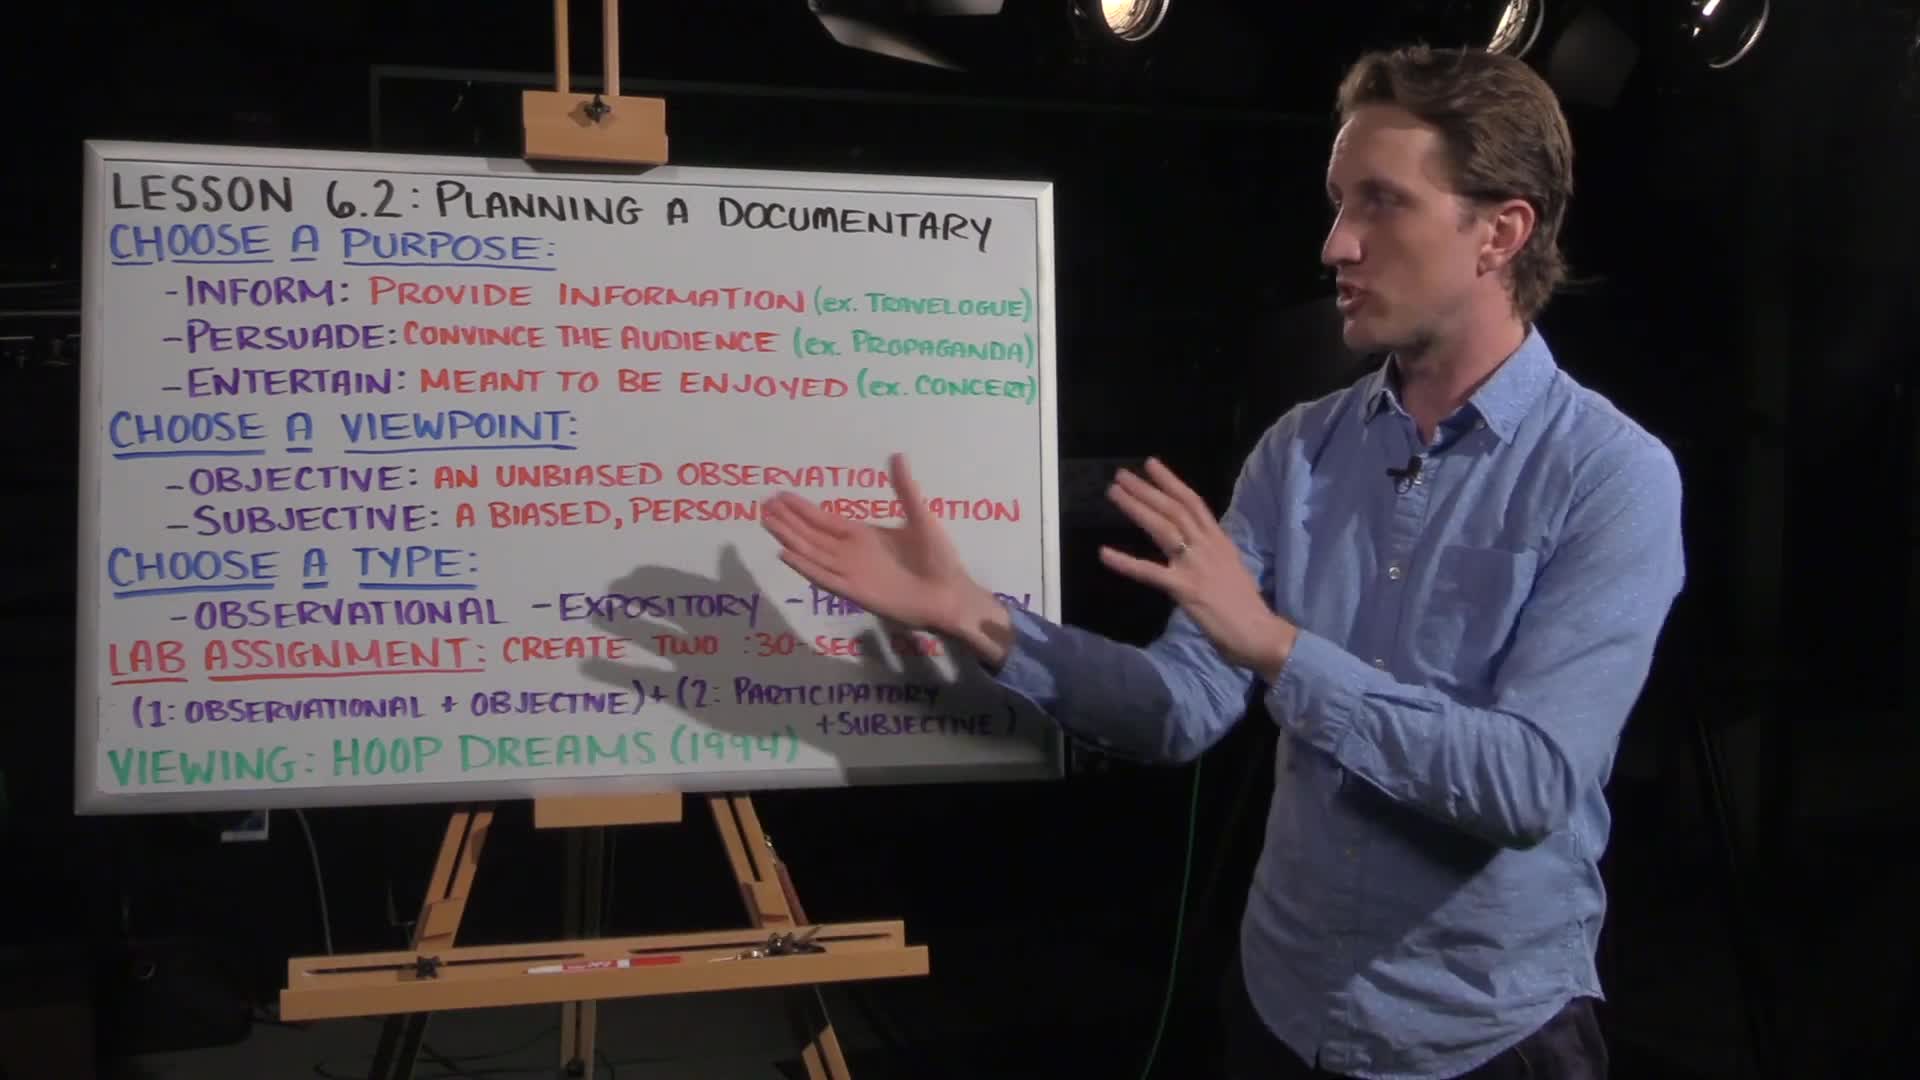 LESSON 6.2: PLANNING A DOCUMENTARY
CHOOSE A PURPOSE:
-INFORM: PROVIDE INFORMATION (ex. TRAVELOGUE)
-PERSUADE: CONVINCE THE AUDIENCE (ex. PROPAGANDA)
-ENTERTAIN: MEANT TO BE ENJOYED (ex. CONCERT)
CHOOSE A VIEWPOINT:
-OBJECTIVE: AN UNBIASED OBSERVATION
-SUBJECTIVE: A BIASED, OBSERVATION
CHOOSE A TYPE:
-OBSERVATIONAL -EXPOSITORY
LAB ASSIGNMENT: CREATE TWO :30-SEC
(1: OBSERVATIONAL + OBJECTIVE) + (2: PARTICIPATORY
+SUBJECTIVE)
VIEWING: HOOP DREAMS (1994)